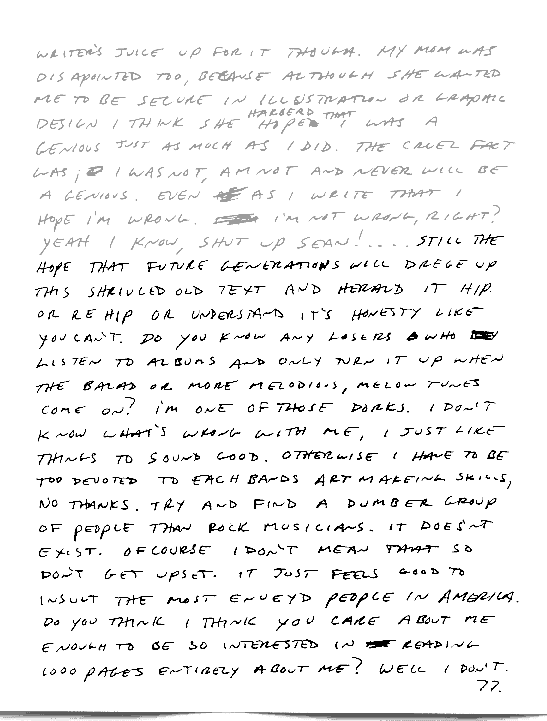 WRITER'S JUICE UP FOR IT THOUGH. MY MOM WAS
DISAPOINTED TOO, BECAUSE ALTHOUGH SHE WANTED
ME TO BE SECURE IN ILLUSTRATION OR GRAPHIC
DESIGN I THINK SHE HARBERD THAT HOPE I WAS A
GENIOUS JUST AS MUCH AS I DID. THE CRUEL FACT
WAS; I WAS NOT, AM NOT AND NEVER WILL BE
A GENIOUS. EVEN AS I WRITE THAT I
HOPE I'M WRONG. I'M NOT WRONG, RIGHT?
YEAH I KNOW, SHUT UP SEAN!.... STILL THE
HOPE THAT FUTURE GENERATIONS WILL DREGE UP
THIS SHRIVLED OLD TEXT AND HERALD IT HIP
OR RE HIP OR UNDERSTAND IT'S HONESTY LIKE
YOU CAN'T. DO YOU KNOW ANY LOSERS WHO
LISTEN TO ALBUMS AND ONLY TURN IT UP WHEN
THE BALAD OR MORE MELODIOUS, MELOW TUNES
COME ON? I'M ONE OF THOSE DORKS. I DON'T
KNOW WHAT'S WRONG WITH ME, I JUST LIKE
THINGS TO SOUND GOOD. OTHERWISE I HAVE TO BE
TOO DEVOTED TO EACH BANDS ART MAKEING SKILLS,
NO THANKS. TRY AND FIND A DUMBER GROUP
OF PEOPLE THAN ROCK MUSICIANS. IT DOESN'T
EXIST. OFCOURSE I DON'T MEAN THAT SO
DON'T GET UPSET. IT JUST FEELS GOOD TO
INSULT THE MOST ENVEYD PEOPLE IN AMERICA.
DO YOU THINK I THINK YOU CARE ABOUT ME
ENOUGH TO BE SO INTERESTED IN READING
1000 PAGES ENTIRELY ABOUT ME? WELL I DON'T.
77.